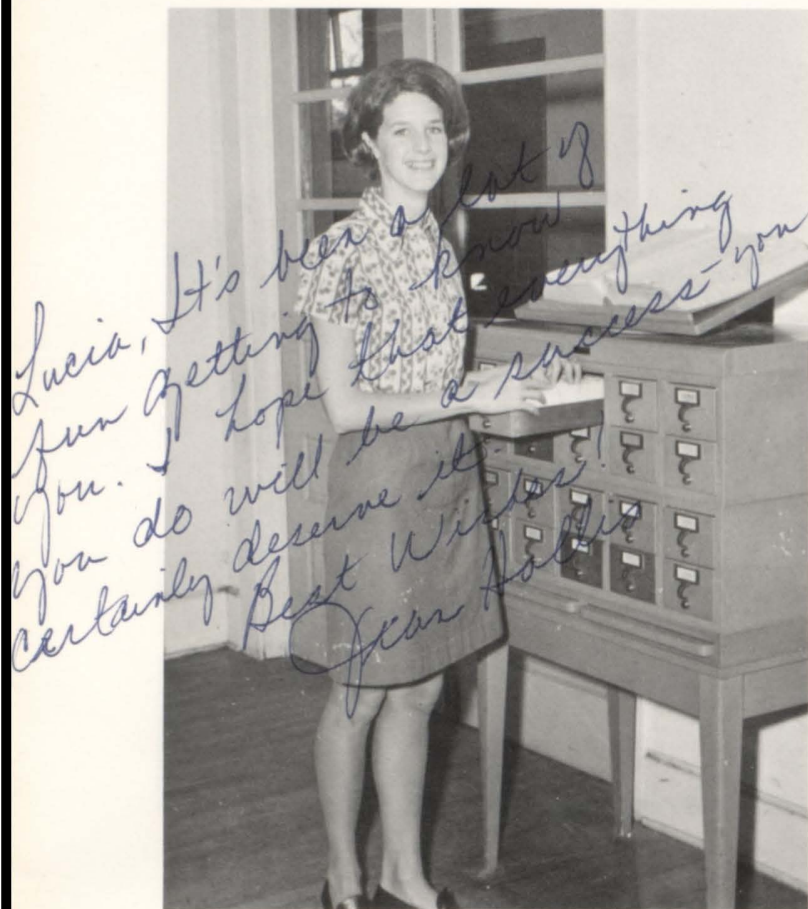 Lucia, It's been a lot of
fun getting to know
you. I hope that everything
you do will be a success - you
certainly deserve it!
Best Wishes
Jean Hollis